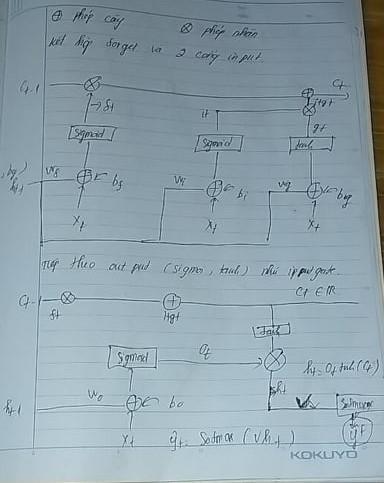 ⊕ phép cộng ⊗ phép nhân
kết hợp forget và 2 cổng input.
Ct-1 Ct
→ ft it itgt
gt
Sigmoid Sigmoid tanh
Wf bf Wi bi Wg bg
ht-1
Xt Xt Xt
tiếp theo output (sigma, tanh) như input gate.
Ct-1 Ct ∈ R
ft itgt
tanh
Sigmoid Ot ht = Ot tanh(Ct)
ht
ht-1 Wo bo V Softmax
Xt ŷt = Softmax (Vht) ŷt
KOKUYO